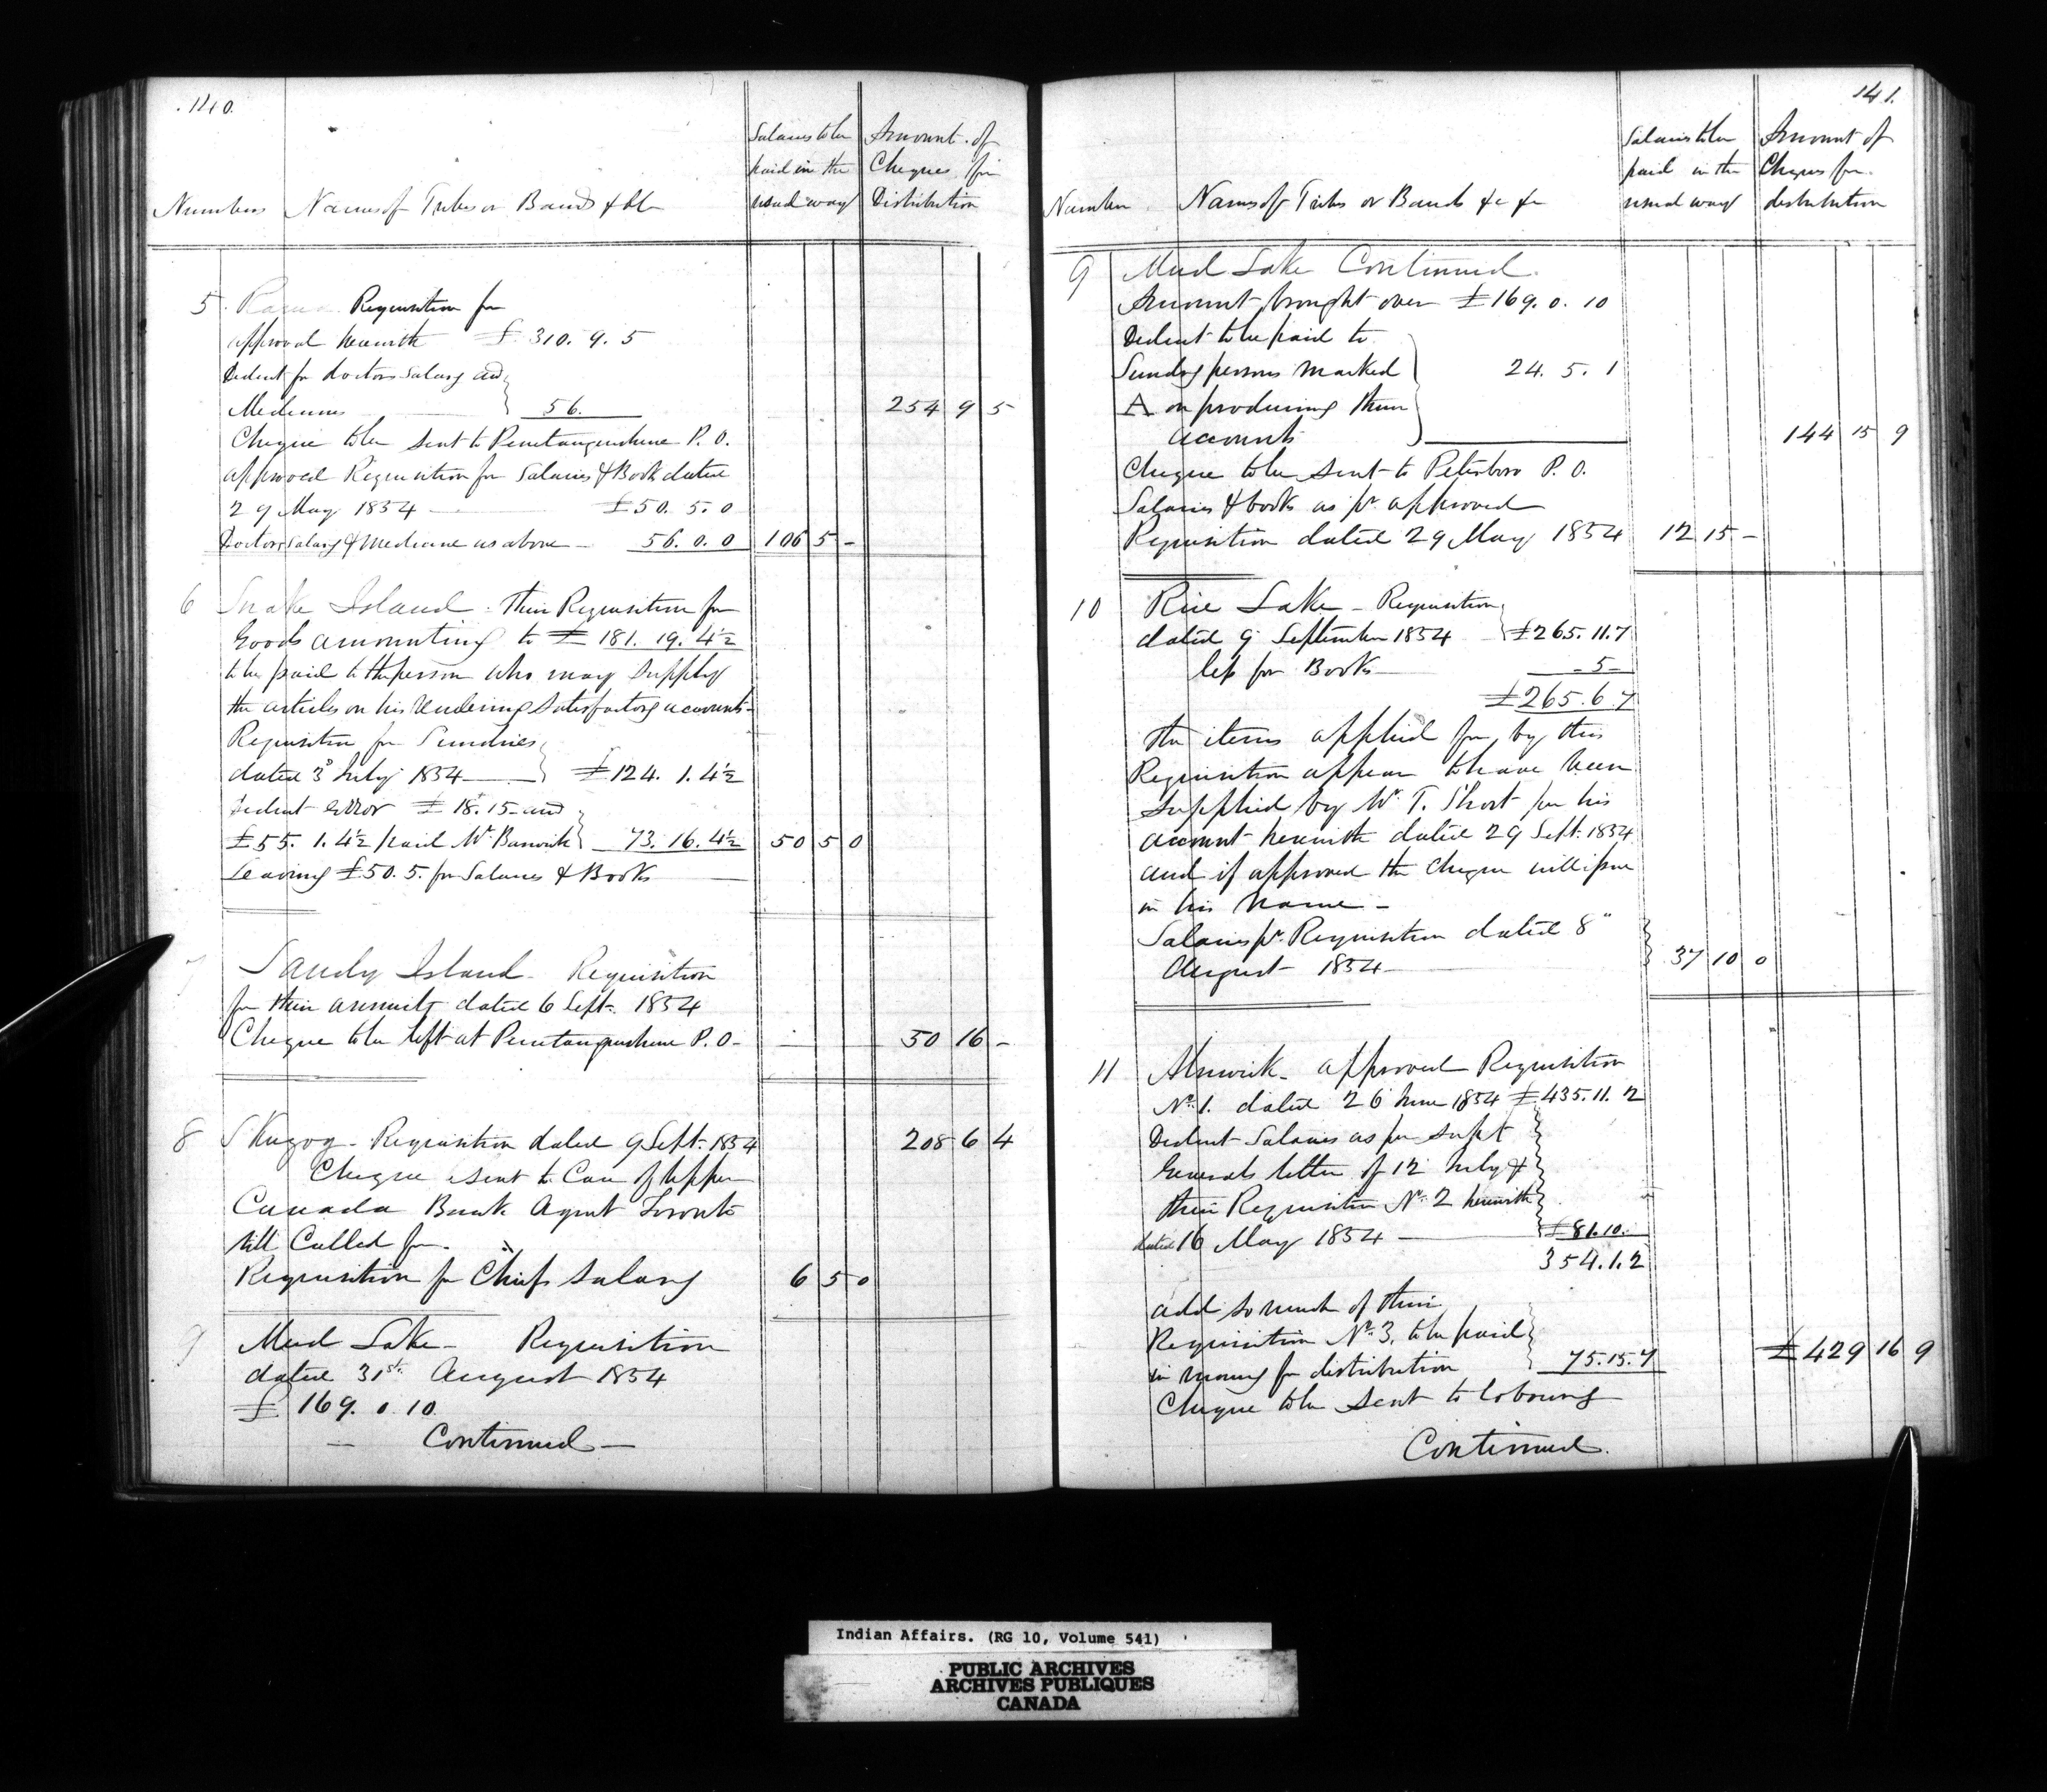 140.
Numbers Names of Tribes or Bands &c &c
Salaries to be paid in the usual way
Amount of Cheques for Distribution
5 Rama Requisition for
approval herewith £ 310. 9. 5
Deduct for doctors Salary and
Medicines 56. 254 9 5
Cheque to be sent to Penetanguishene P. O.
approved Requisition for Salaries & Books dated
29 May 1854 £50. 5. 0
Doctors Salary & Medicine as above — 56. 0. 0 106 5 -
6 Snake Island - their Requisition for
Goods amounting to £ 181. 19. 4½
to be paid to the person who may supply
the articles on his rendering satisfactory accounts -
Requisition for Sundries
dated 3d July 1854 £124. 1. 4½
Deduct error £18. 15 - and
£55. 1. 4½ paid Mr Barwick 73. 16. 4½ 50 5 0
Leaving £50. 5. for Salaries & Books
7 Sandy Island - Requisition
for their annuity dated 6 Sept. 1854
Cheque to be left at Penetanguishene P. O - 50 16 -
8 Skugog - Requisition dated 9 Sept. 1854 208 6 4
Cheque sent to Care of Upper
Canada Bank Agent Toronto
till Called for.
Requisition for Chiefs Salary 6 5 0
9 Mud Lake - Requisition
dated 31st August 1854
£ 169. 0. 10
— Continued —
141.
Number Names of Tribes or Bands &c &c
Salaries to be paid in the usual way
Amount of Cheques for distribution
9 Mud Lake Continued.
Amount brought over £169. 0. 10
Deduct to be paid to
Sundry persons marked 24. 5. 1
A on producing their
accounts 144 15 9
Cheque to be sent to Peterboro P. O.
Salaries & books as pr. approved
Requisition dated 29 May 1854 12 15 -
10 Rice Lake - Requisition
dated 9 September 1854 £265. 11. 7
less for Books - 5 -
£265. 6. 7
The items applied for by this
Requisition appear to have been
Supplied by Mr. T. Short per his
account herewith dated 29 Sept. 1854
and if approved the Cheque will issue
in his name -
Salaries pr. Requisition dated 8"
August 1854 37 10 0
11 Alnwick - approved Requisition
No. 1. dated 26 June 1854 £435. 11. 2
Deduct Salaries as per Supt
Generals letter of 12 July &
their Requisition No. 2 herewith
dated 16 May 1854 £81. 10.
354. 1. 2
add so much of their
Requisition No. 3, to be paid
in money for distribution 75. 15. 7 £429 16 9
Cheque to be sent to Cobourg
Continued.
Indian Affairs. (RG 10, Volume 541)
PUBLIC ARCHIVES
ARCHIVES PUBLIQUES
CANADA